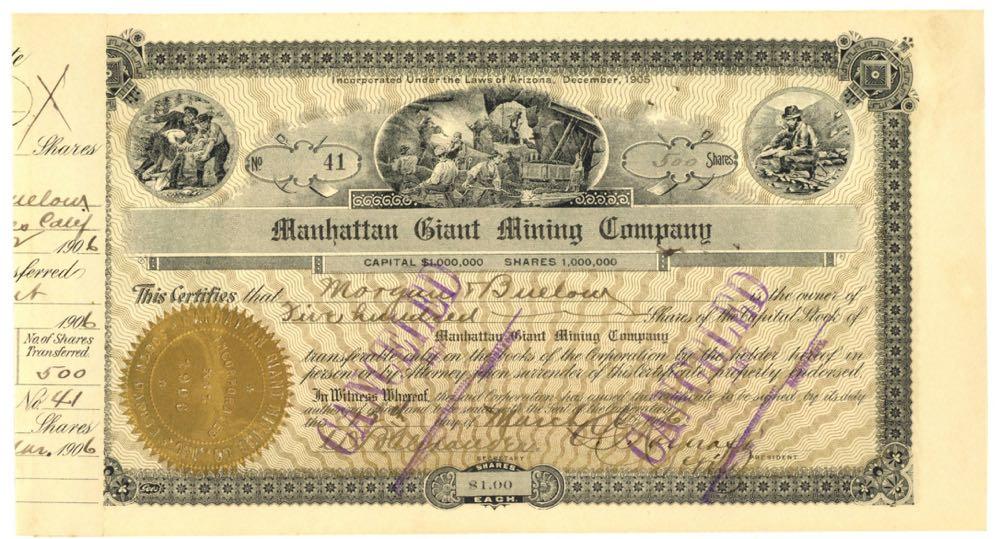 Incorporated Under the Laws of Arizona, December, 1905
No 41
500 Shares
Manhattan Giant Mining Company
CAPITAL $1,000,000 SHARES 1,000,000
This Certifies that Morgan & Buelow is the owner of
Five hundred Shares of the Capital Stock of
Manhattan Giant Mining Company
transferable only on the Books of the Corporation by the holder hereof in
person or by Attorney upon surrender of this Certificate properly endorsed.
In Witness Whereof, the said Corporation has caused this Certificate to be signed by its duly
authorized officers and to be sealed with the Seal of the Corporation
the day of March
SECRETARY
PRESIDENT
CANCELLED
CANCELLED
SHARES
$1.00
EACH.
Shares
uelow
Calif
1906
sferred
1906
No. of Shares
Transferred
500
No. 41
Shares
Mar. 1906